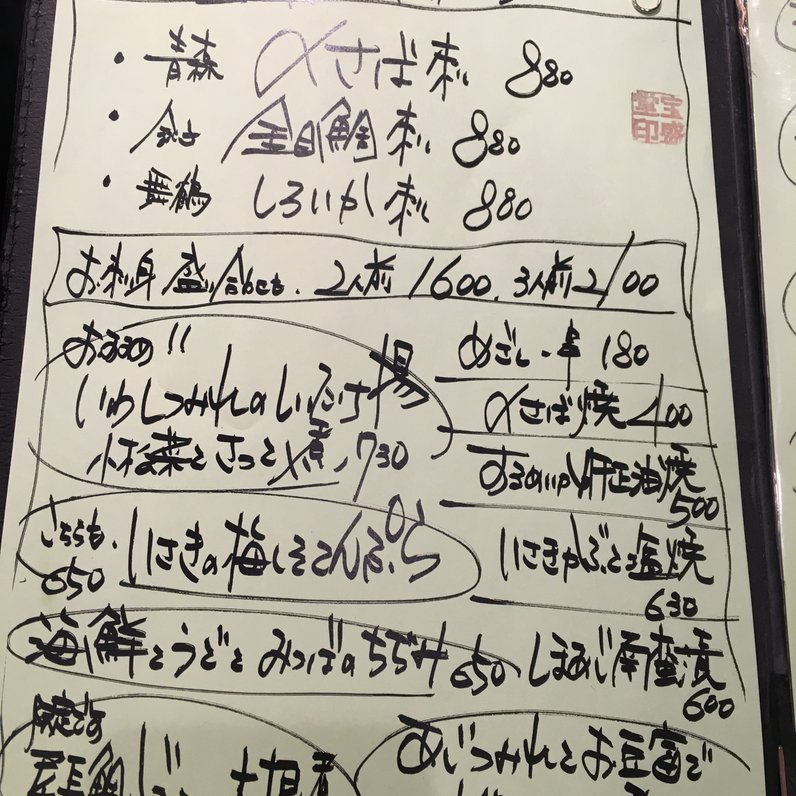 ・青森 〆さば刺 880
・金目鯛刺 880
・舞鶴 しろいか刺 880
宝盛堂印
お刺身盛り合わせも、2人前1600、3人前2100
おすすめ!!
いわしつみれのしいたけ揚
小松菜とさっと煮 730
こちらも、
いさきの梅しそてんぷら
650
海鮮とうどとみつばのちぢみ 650
限定です
めざし一串 180
〆さば焼 400
するめいか肝正油焼
500
いさきかぶと塩焼
630
しまあじ南蛮漬
600
あじつみれとお豆富で